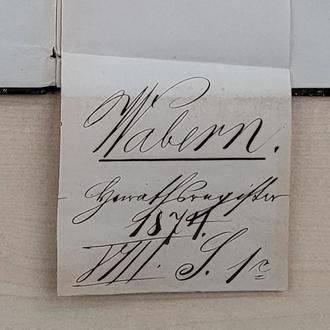 Wabern.
Heirathsregister
1874.
VIII. S. 1c